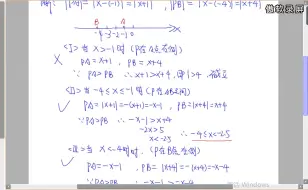 |x-(-1)| = |x+1|, |PB| = |x-(-4)| = |x+4|
B A
-4 -3 -2 -1 0 x
<I> 当 x>-1 时 (P在A点右侧)
PA = x+1, PB = x+4
∵ PA>PB ∴ x+1>x+4, 即1>4
<II> 当 -4≤x≤-1 时 (P在AB之间)
PA = |x+1| = -(x+1) = -x-1, PB = |x+4| = x+4
∵ PA>PB ∴ -x-1 > x+4
-2x>5
x<-2.5 ∴ -4≤x<-2.5
<III> 当 x<-4 时 (P在B点左侧)
PA = -x-1, PB = |x+4| = -(x+4) = -x-4
∵ PA>PB ∴ -x-1 > -x-4